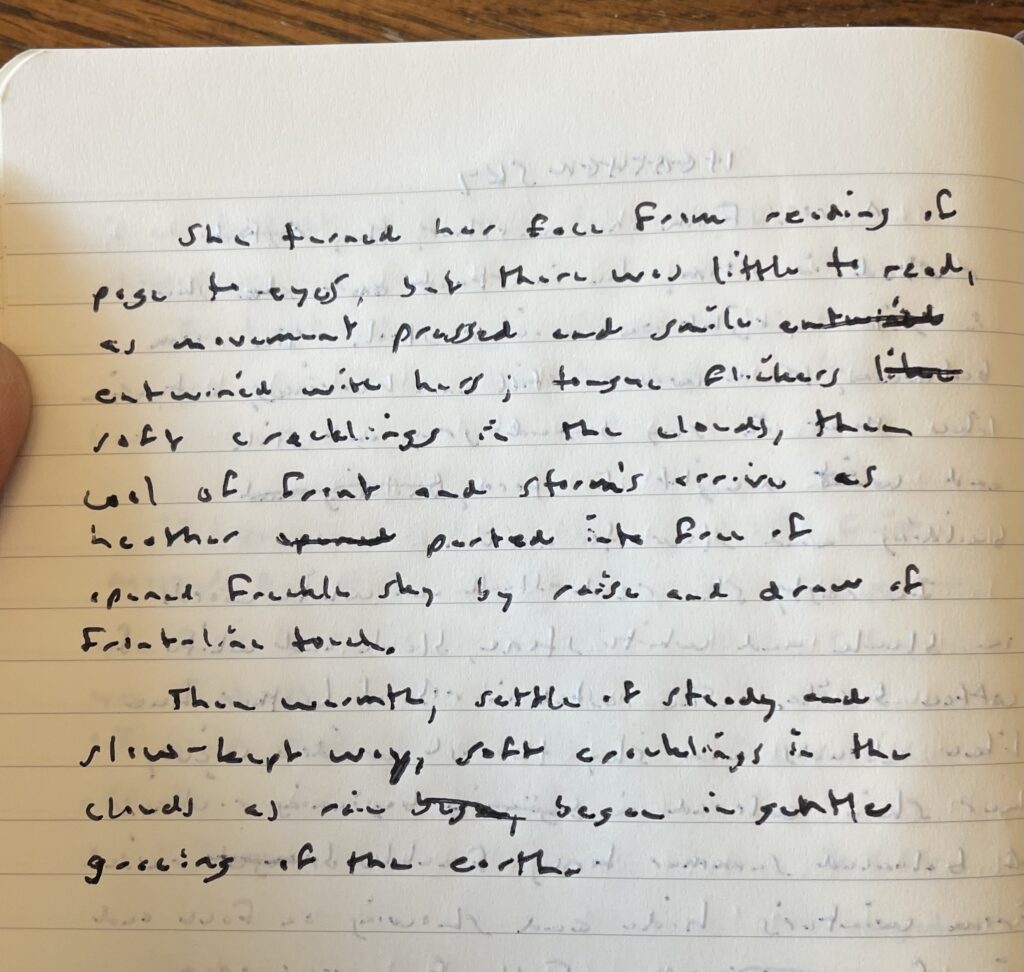 She turned her face from reading of
page to eyes, but there was little to read,
as movement pressed and smile entwined
entwined with hers; tongue flickers like
soft cracklings in the clouds, then
cool of front and storm's arrive as
heather opened parted into face of
opened freckle sky by raise and draw of
front-line touch.
Then warmth; settle of steady and
slow-kept way, soft cracklings in the
clouds as rain began, began in gentle
gracing of the earth.